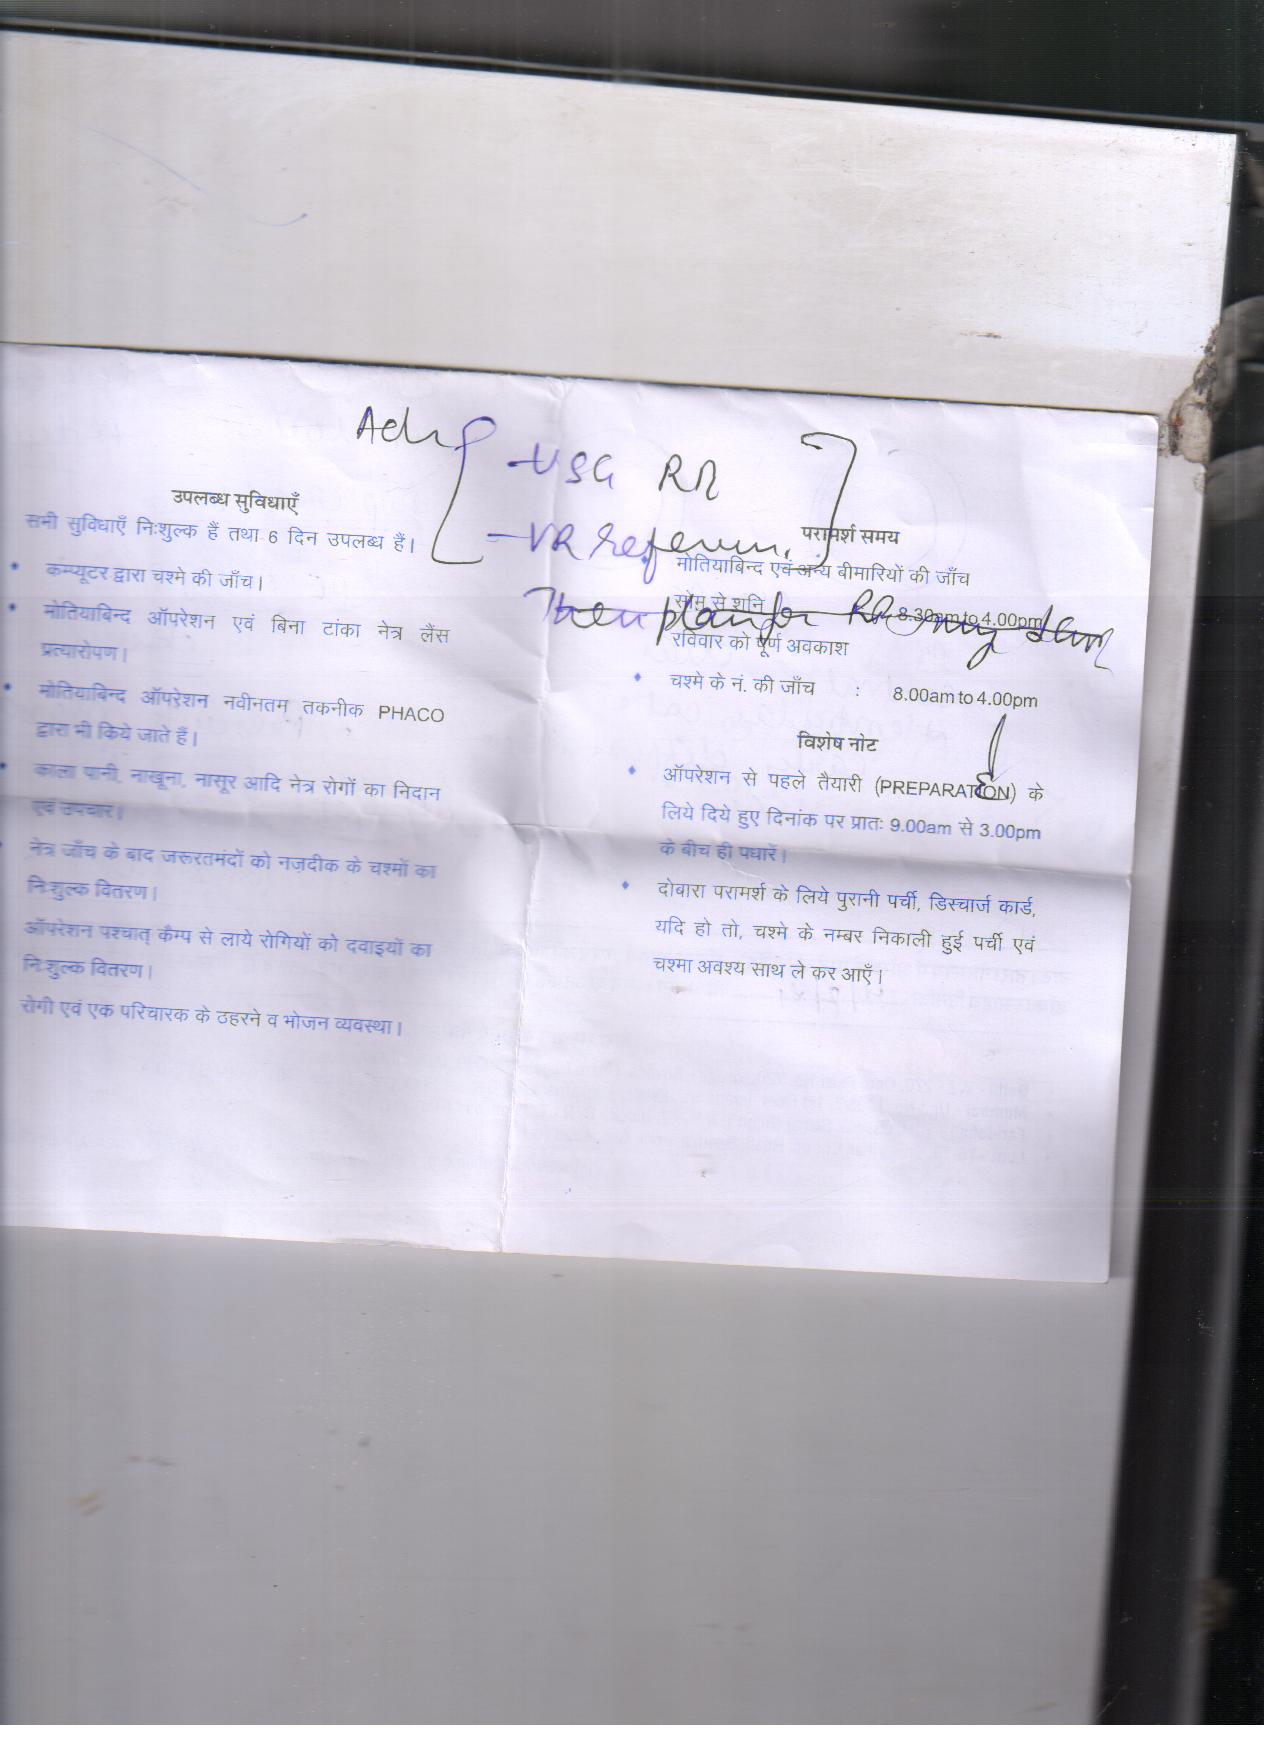 Adv
-USG RR
-VR Referen.
Then plan for RR
उपलब्ध सुविधाएँ
सभी सुविधाएँ निःशुल्क हैं तथा 6 दिन उपलब्ध हैं।
कम्प्यूटर द्वारा चश्मे की जाँच।
मोतियाबिन्द ऑपरेशन एवं बिना टांका नेत्र लैंस
प्रत्यारोपण।
मोतियाबिन्द ऑपरेशन नवीनतम् तकनीक PHACO
द्वारा भी किये जाते हैं।
काला पानी, नाखूना, नासूर आदि नेत्र रोगों का निदान
एवं उपचार।
नेत्र जाँच के बाद जरूरतमंदों को नज़दीक के चश्मों का
निःशुल्क वितरण।
ऑपरेशन पश्चात् कैम्प से लाये रोगियों को दवाइयों का
निःशुल्क वितरण।
रोगी एवं एक परिचारक के ठहरने व भोजन व्यवस्था।
परामर्श समय
मोतियाबिन्द एवं अन्य बीमारियों की जाँच
सोम से शनि 8.30am to 4.00pm
रविवार को पूर्ण अवकाश
चश्मे के नं. की जाँच : 8.00am to 4.00pm
विशेष नोट
ऑपरेशन से पहले तैयारी (PREPARATION) के
लिये दिये हुए दिनांक पर प्रातः 9.00am से 3.00pm
के बीच ही पधारें।
दोबारा परामर्श के लिये पुरानी पर्ची, डिस्चार्ज कार्ड,
यदि हो तो, चश्मे के नम्बर निकाली हुई पर्ची एवं
चश्मा अवश्य साथ ले कर आएँ।